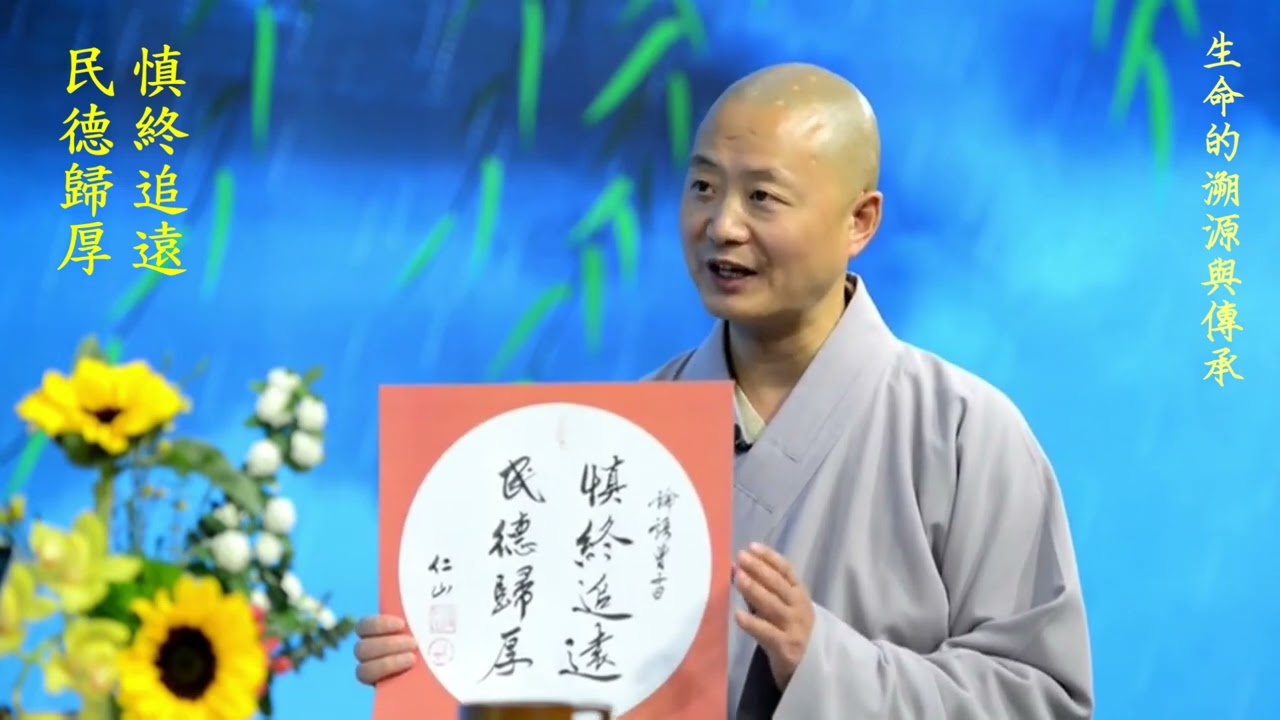 慎終追遠
民德歸厚
生命的溯源與傳承
論語曾言
慎終追遠
民德歸厚
仁山